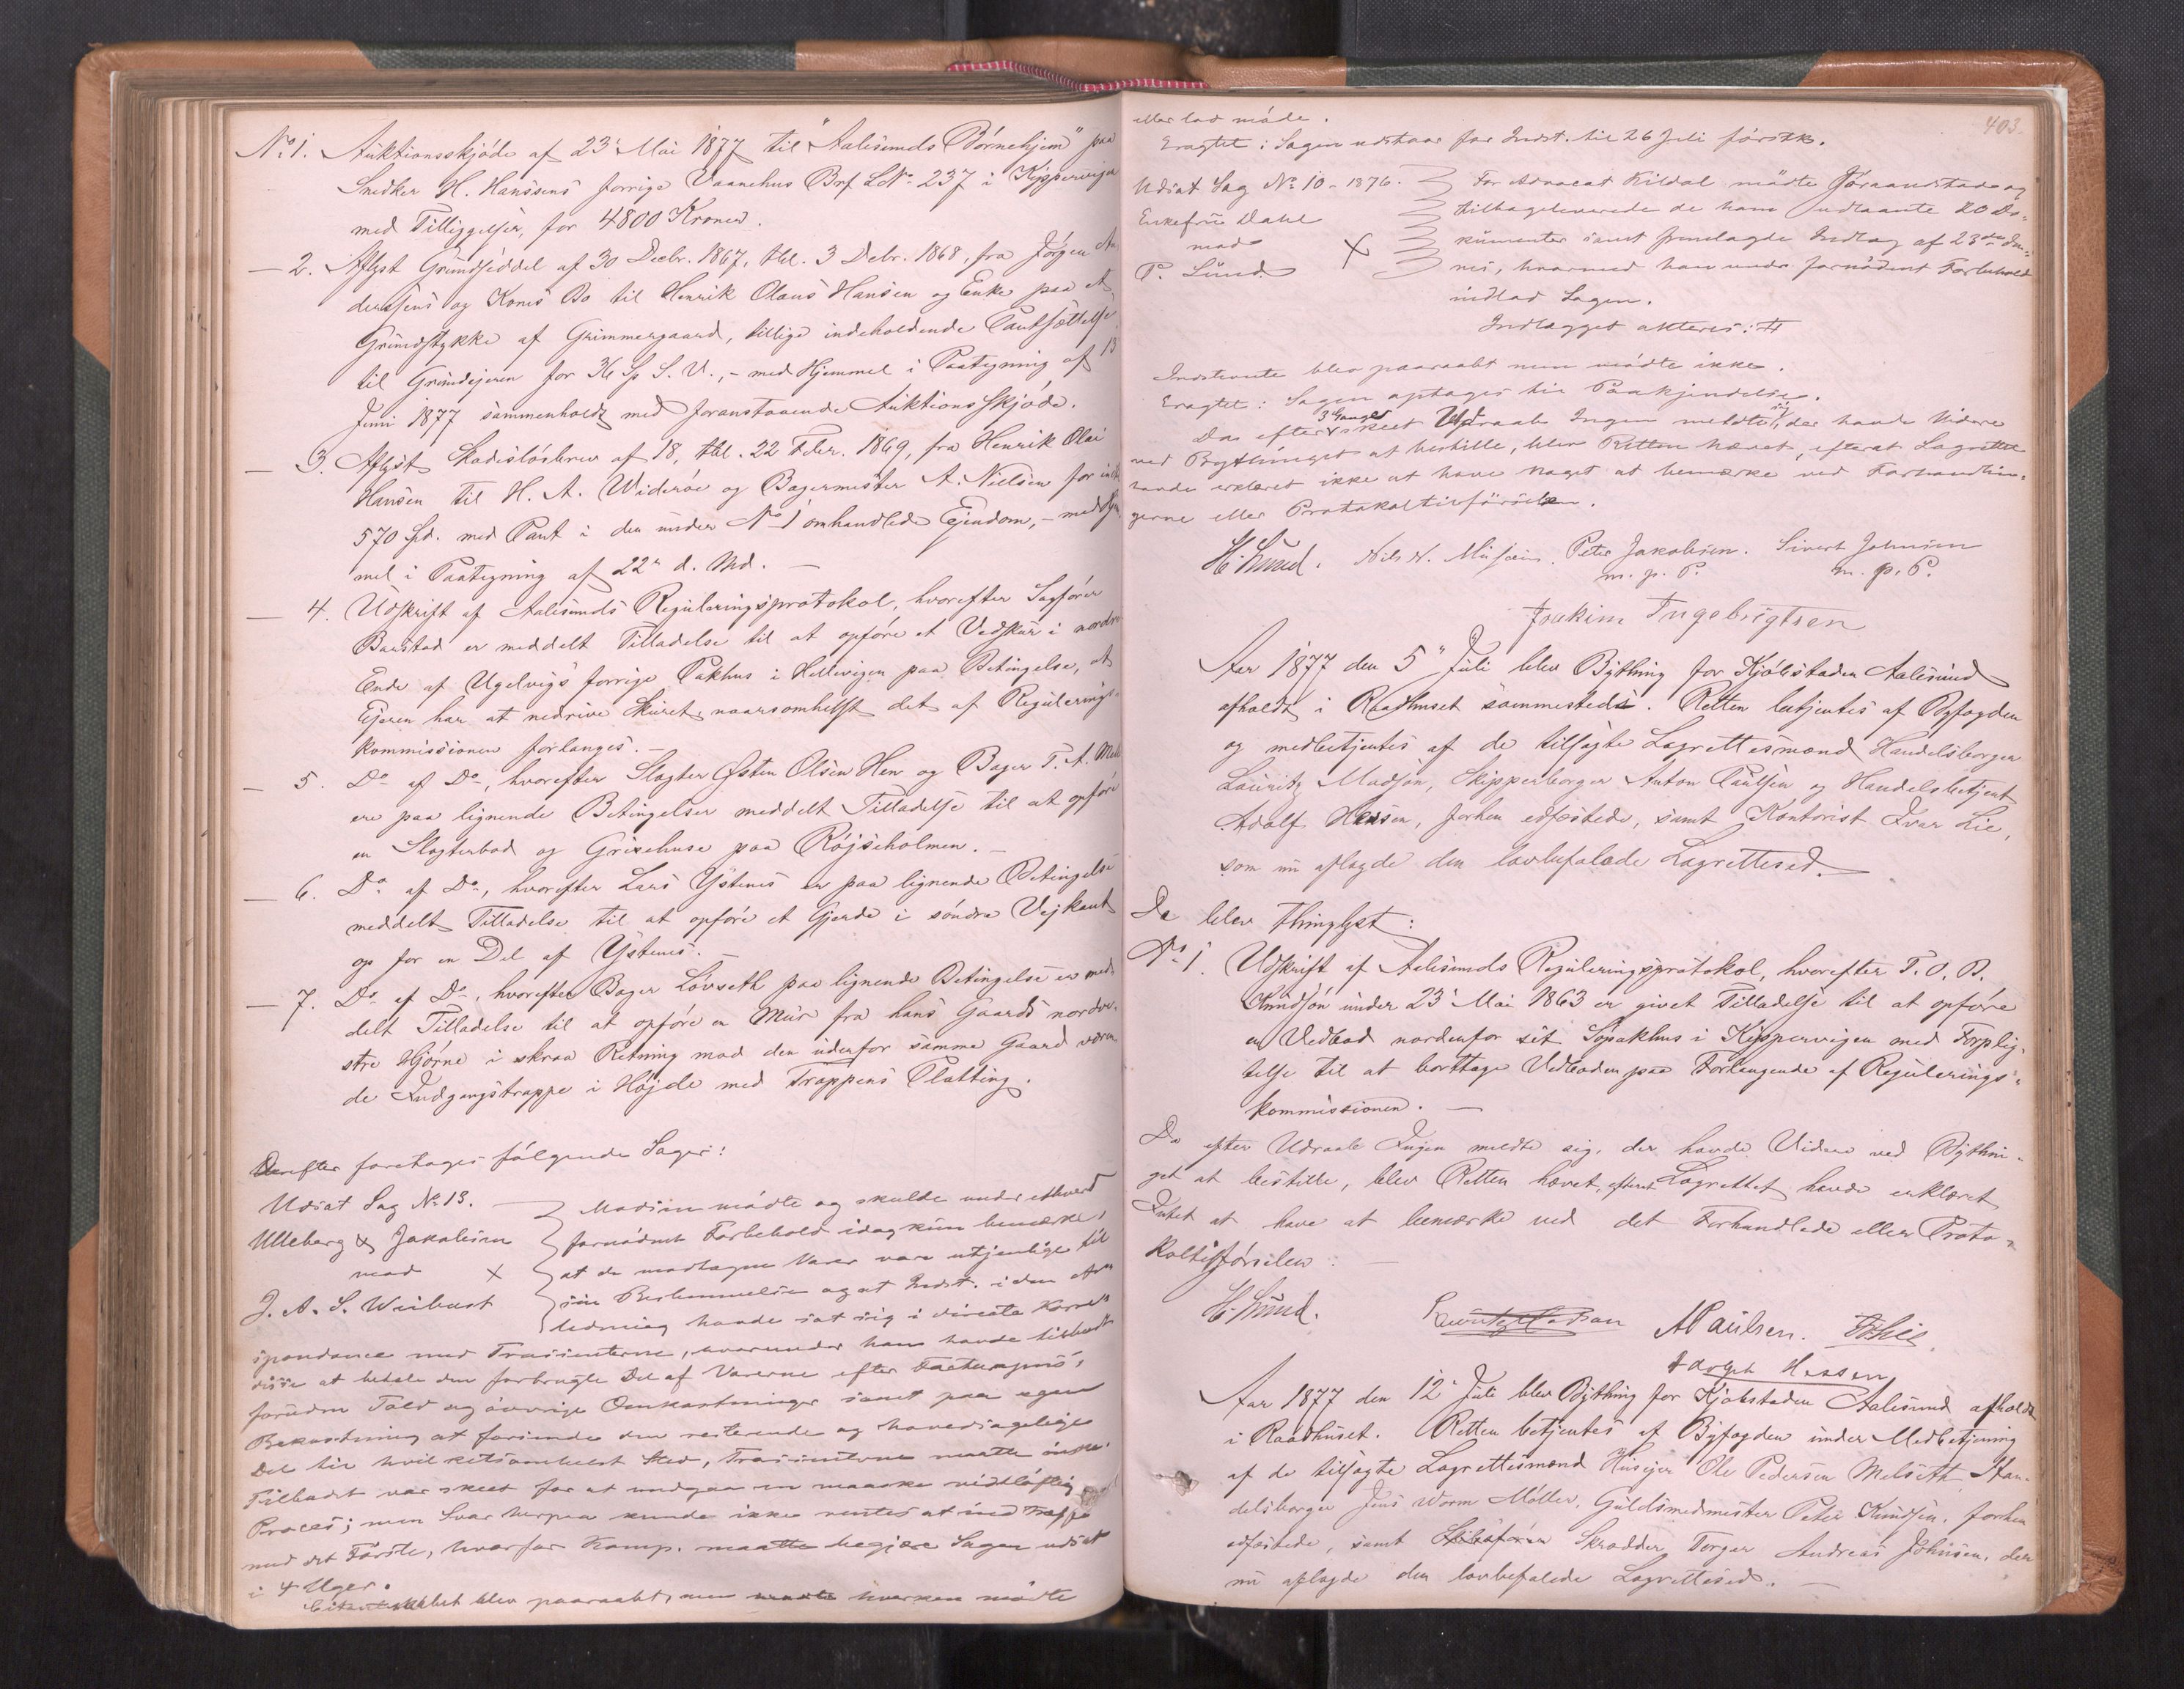 No 1. Auktionsskjøde af 23' Mai 1877 til "Aalesunds Børnehjem" paa
Snedker H. Hanssens forrige Vaanehus Brf LNo 237 i Kippervigen
med Tilliggelser, for 4800 Kroner.
— 2. Aflyst Grundseddel af 30 Decbr. 1867, tbl. 3 Debr. 1868, fra Jørgen An
derssens og Kones Bo til Henrik Olaus Hansen og Enke paa et
Grundstykke af Grimmergaard, tillige indeholdende Pantsættelse
til Grundejeren for 36 Sp S. V., – med Hjemmel i Paategning af 13
Juni 1877 sammenholdt med foranstaaende Auktionsskjøde.
— 3. Aflyst Skadesløsbrev af 18, tbl. 22 Febr. 1869, fra Henrik Olai
Hansen til H. A. Widerøe og Bagermester A. Nielsen for indtil
570 Spd. med Pant i den under No 1 omhandlede Ejendom, – med Hjem
mel i Paategning af 22' d. Md. —
— 4. Udskrift af Aalesunds Reguleringsprotokol, hvorefter Sagfører
Baustad er meddelt Tilladelse til at opføre et Vedskur i nordre
Ende af Ugelvigs forrige Pakhus i Hellevigen paa Betingelse, at
Ejeren har at nedrive Skuret, naarsomhelst det af Regulerings-
kommissionen forlanges. —
— 5. Do af Do, hvorefter Slagter Østen Olsen Hen og Bager T. A.
ere paa lignende Betingelser meddelt Tilladelse til at opføre
en Slagterbod og Grisehuse paa Røjseholmen. —
— 6. Do af Do, hvorefter Lars Ystenes er paa lignende Betingelse
meddelt Tilladelse til at opføre et Gjerde i søndre Vejkant
op for en Del af Ystenes. —
— 7. Do af Do, hvorefter Bager Løvseth paa lignende Betingelse er med-
delt Tilladelse til at opføre en Mur fra hans Gaards nordve-
stre Hjørne i skraa Retning mod den udenfor samme Gaard væren
de Indgangstrappe i Højde med Trappens Platting.
Derefter foretages følgende Sager:
Udsat Sag No 13. — Madsen mødte og skulde under ethvert
Ulleberg & Jakobsen fornødent Forbehold idag kun bemærke,
mod × at de modtagne Varer vare utjenlige til
J. A. S. Wiibust sin Bestemmelse og at Indst. i den An
ledning havde sat sig i directe Korre-
spondance med Trassenterne, hvorunder han havde tilbudt
disse at betale den forbrugte Del af Varerne efter Facturapris,
foruden Told og øvrige Omkostninger samt paa egen
Bekostning at forsende den resterende og hovedsagelige
Del til hvilketsomhelst Sted, Trassenterne maatte ønske.
Tilbudet var skeet for at undgaa en maaske vidtløftig
Proces; men Svar herpaa kunde ikke ventes at indtræffe
med det Første, hvorfor Komp. maatte begjære Sagen udsat
i 4 Uger.
blev paaraabt, men hverken mødte
403.
eller lod møde.
Eragtet: Sagen udstaar for Indst. til 26 Juli førstk.
Udsat Sag No 10 - 1876. For Advocat Kildal mødte Joraanstad og
Enkefru Dahl tilbageleverede de ham udlaante 20 Do-
mod × kumenter samt fremlagde Indlæg af 23de Ju-
P. Lund ni, hvormed han under fornødent Forbehold
indlod Sagen.
Indlægget akteres:
Indstevnte blev paaraabt men mødte ikke.
Eragtet: Sagen optages til Paakjendelse.
Da efter 3 Gange skeet Udraab Ingen meldte sig, der havde Videre
ved Bythinget at bestille, blev Retten hævet, efterat Lagrettet
havde erklæret ikke at have noget at bemærke ved Forhandlin-
gerne eller Protokoltilførselen.
H. Lund. Nils N. Peter Jakobsen. Sivert Johnsen
m. p. P. m. p. P.
Joakim Ingebrigtsen
Aar 1877 den 5" Juli blev Bything for Kjøbstaden Aalesund
afholdt i Raadhuset sammesteds. Retten betjentes af Byfogden
og medbetjentes af de tilsagte Lagrettesmænd Handelsborger
Lauritz Madsen, Skipperborger Anton Paulsen og Handelsbetjent
Adolf Hessen, forhen edfæstede, samt Kontorist Ivar Lie,
som nu aflagde den lovbefalede Lagrettesed.
Da blev thinglyst:
No 1. Udskrift af Aalesunds Reguleringsprotokol, hvorefter T. O. B.
Knudsøn under 23' Mai 1863 er givet Tilladelse til at opføre
en Vedbod nordenfor sit Søpakhus i Kippervigen med Forplig-
telse til at borttage Vedboden paa Forlangende af Regulerings-
kommissionen. —
Da efter Udraab Ingen meldte sig, der havde Videre ved Bythin-
get at bestille, blev Retten hævet, efterat Lagrettet havde erklæret
Intet at have at bemærke ved det Forhandlede eller Proto-
koltilførselen: —
H. Lund. Lauritz Madsen A Paulsen. I Lie
Adolph Hessen
Aar 1877 den 12' Juli blev Bything for Kjøbstaden Aalesund afholdt
i Raadhuset. Retten betjentes af Byfogden under Medbetjening
af de tilsagte Lagrettesmænd Husejer Ole Pedersen Melseth, Han-
delsborger Jens Worm Møller, Guldsmedmester Peter Knudsen, forhen
edfæstede, samt Skrædder Torger Andreas Johnsen, der
nu aflagde den lovbefalede Lagrettesed. —